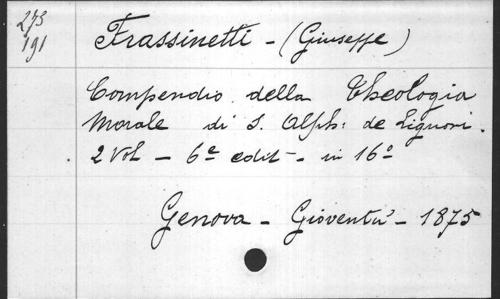 273
191
Frassinetti - (Giuseppe)
Compendio della Theologia
Morale di S. Alph: de Liguori.
2 Vol - 6e edit - in 16o
Genova - Gioventù - 1875